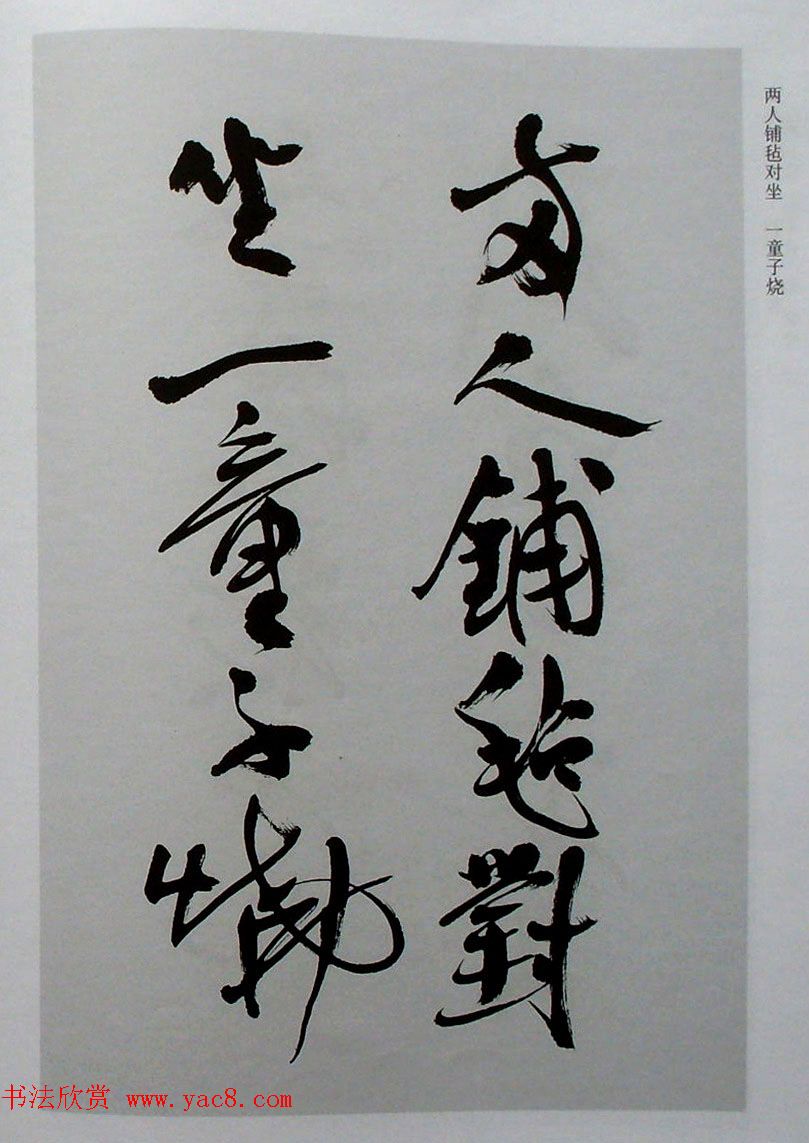 两人铺毡对坐 一童子烧
兩人鋪氈對
坐一童子燒
书法欣赏 www.yac8.com